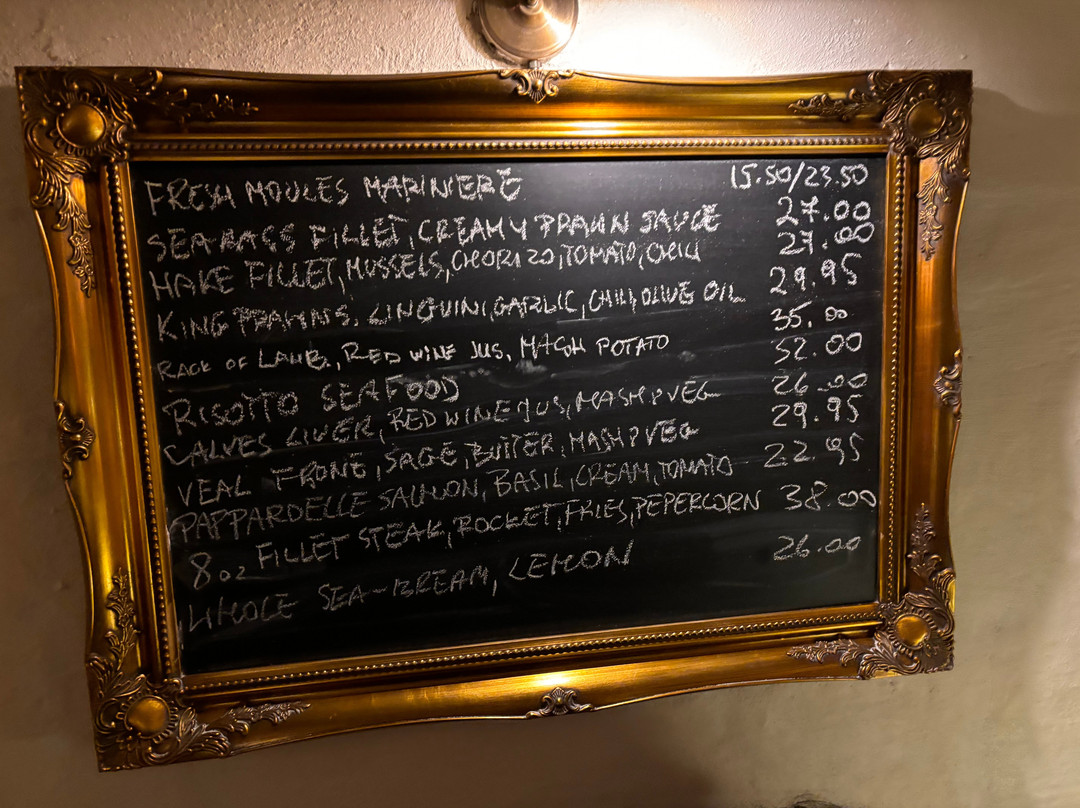 FRESH MOULES MARINIERE 15.50/23.50
SEABASS FILLET, CREAMY PRAWN SAUCE 27.00
HAKE FILLET, MUSSELS, CHORIZO, TOMATO, CHILI 27.00
KING PRAWNS, LINGUINI, GARLIC, CHILI, OLIVE OIL 29.95
RACK OF LAMB, RED WINE JUS, MASH POTATO 35.00
RISOTTO SEAFOOD 52.00
CALVES LIVER, RED WINE JUS, MASH & VEG 26.00
VEAL TRONE, SAGE, BUTTER, MASH & VEG 29.95
PAPPARDELLE SALMON, BASIL, CREAM, TOMATO 22.95
8oz FILLET STEAK, ROCKET, FRIES, PEPERCORN 38.00
WHOLE SEA-BREAM, LEMON 26.00